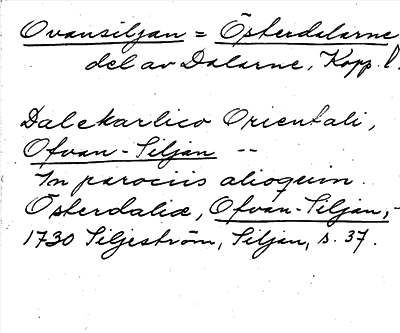 Ovansiljan = Österdalarne
del av Dalarne, Kopp. l.
Dalekarlico Orientali,
Ofvan-Siljan --
In parociis alioquim.
Österdaliæ, Ofvan-Siljan,-
1730 Siljeström, Siljan, s. 37.